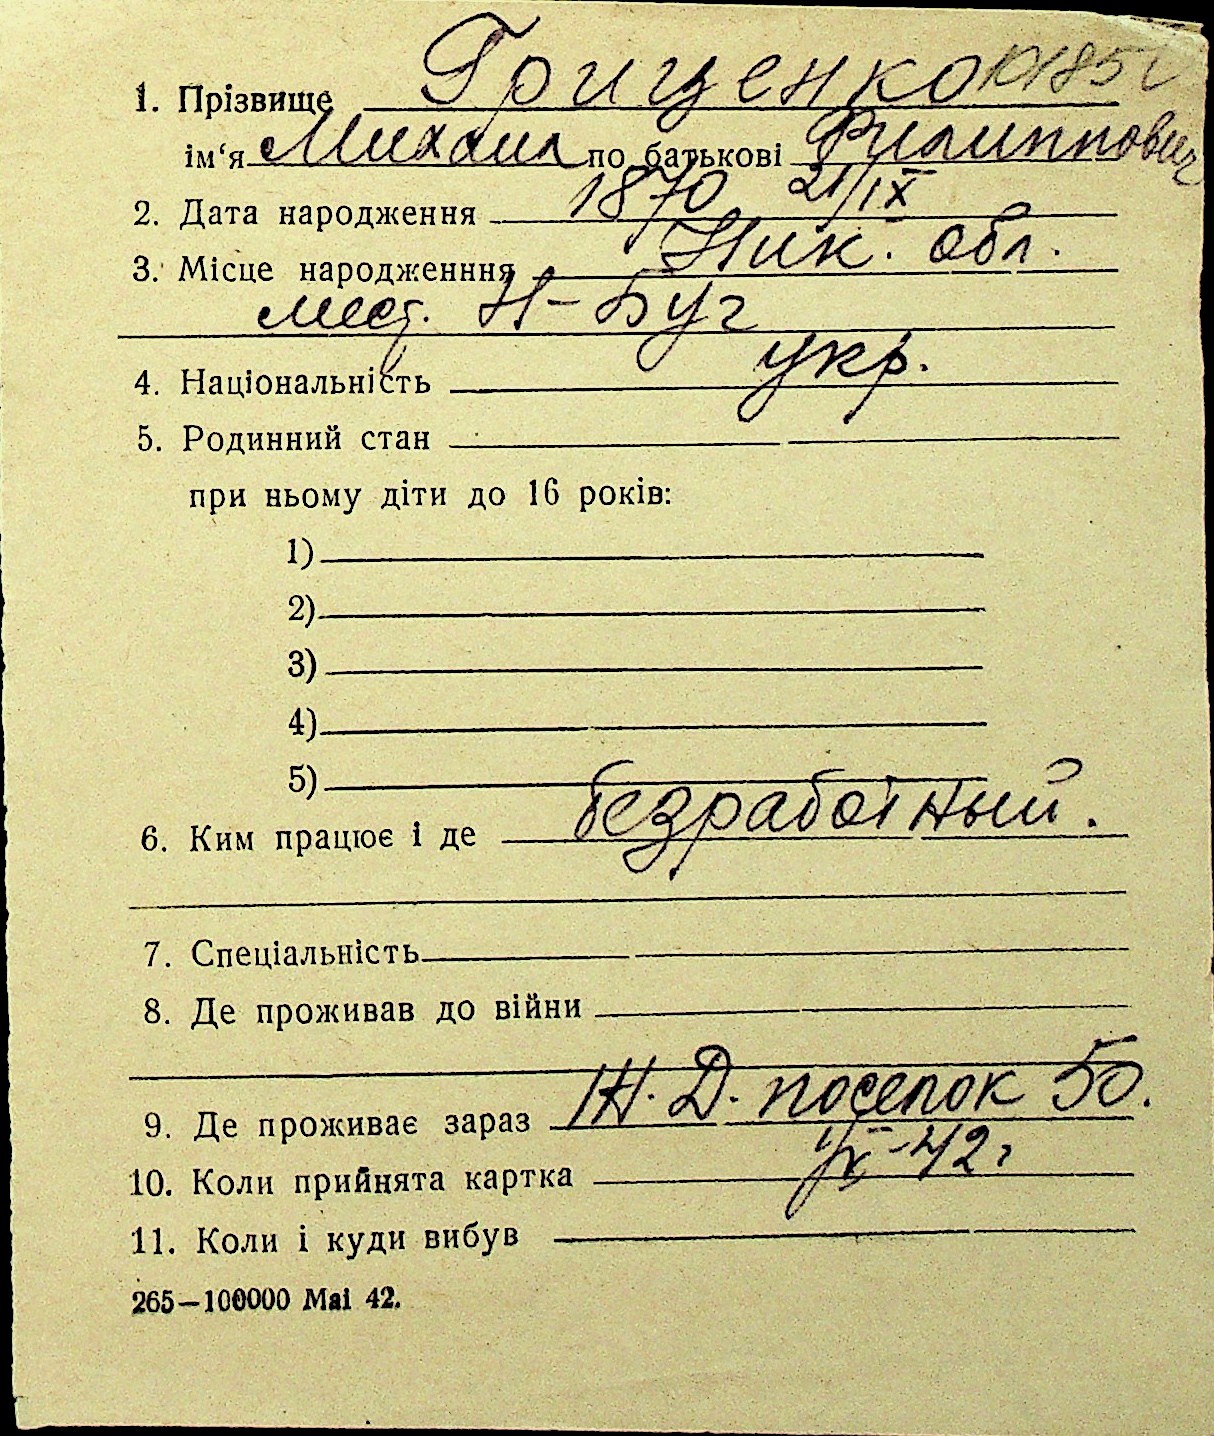 1. Прізвище Гриценко
ім‘я Михаил по батькові Филиппович
2. Дата народження 1870 21/IX
3. Місце народженння Ник. обл.
мест. Н-Буг
4. Національність укр.
5. Родинний стан
при ньому діти до 16 років:
1)
2)
3)
4)
5)
6. Ким працює і де безработный.
7. Спеціальність
8. Де проживав до війни
9. Де проживає зараз Ж.Д. поселок 50.
10. Коли прийнята картка -42 г
11. Коли і куди вибув
265—100000 Mai 42.